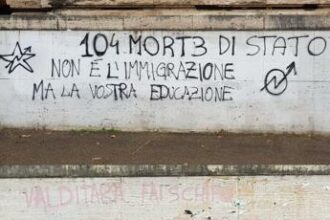 104 MORT3 DI STATO
NON É L'IMMIGRAZIONE
MA LA VOSTRA EDUCAZIONE
VALDITARA